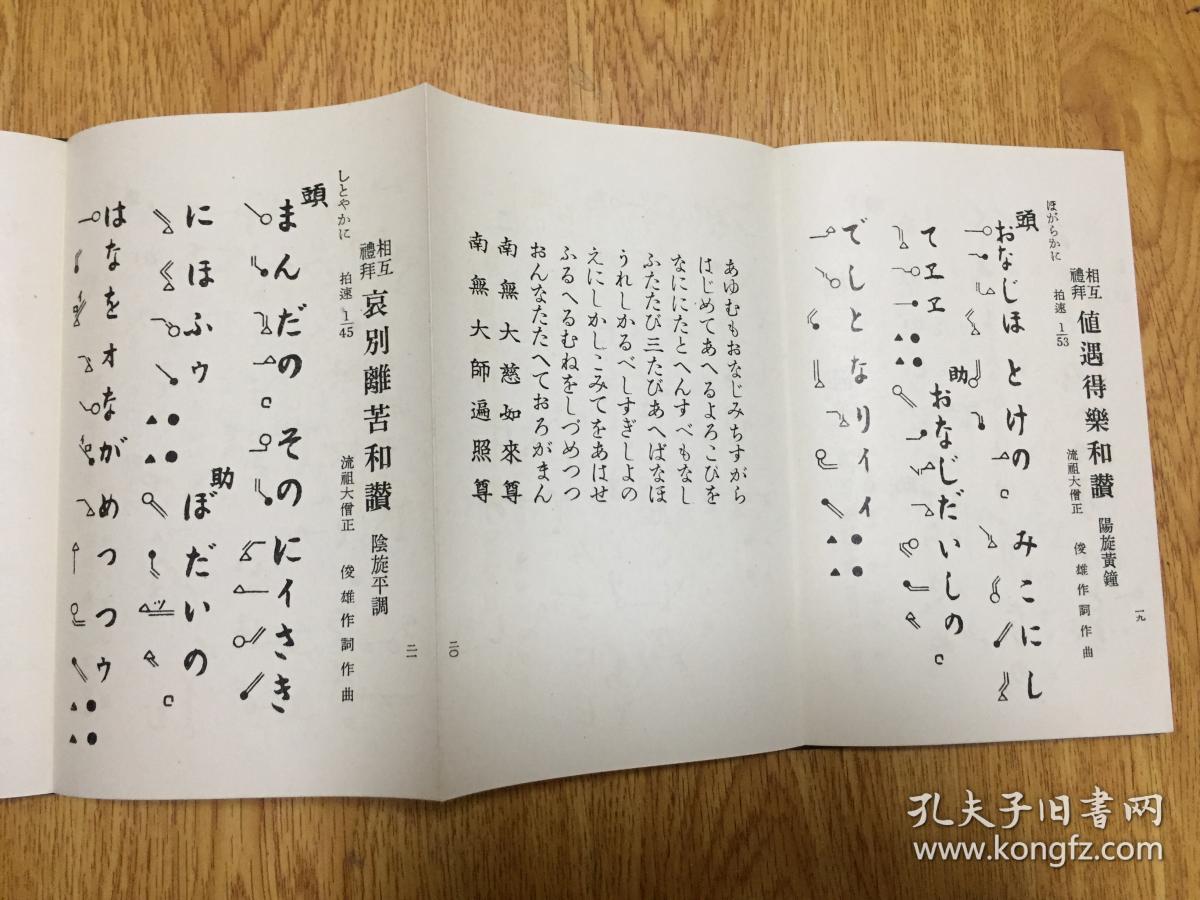 ほがらかに
相互禮拜 値遇得樂和讃 陽旋黃鐘
拍速 1/53 流祖大僧正 俊雄作詞作曲
頭 おなじほとけの みこにし
てヱヱ 助 おなじだいしの
でしとなりイイ
一九
あゆむもおなじみちすがら
はじめてあへるよろこびを
なににたとへんすべもなし
ふたたび三たびあへばなほ
うれしかるべしすぎしよの
えにしかしこみてをあはせ
ふるへるむねをしづめつつ
おんなたたへておろがまん
南無大慈如來尊
南無大師遍照尊
二〇
しとやかに
相互禮拜 哀別離苦和讃 陰旋平調
拍速 1/45 流祖大僧正 俊雄作詞作曲
頭 まんだのそのにイさき
にほふゥ 助 ぼだいの
はなをオながめつつゥ
二一
孔夫子旧书网
www.kongfz.com